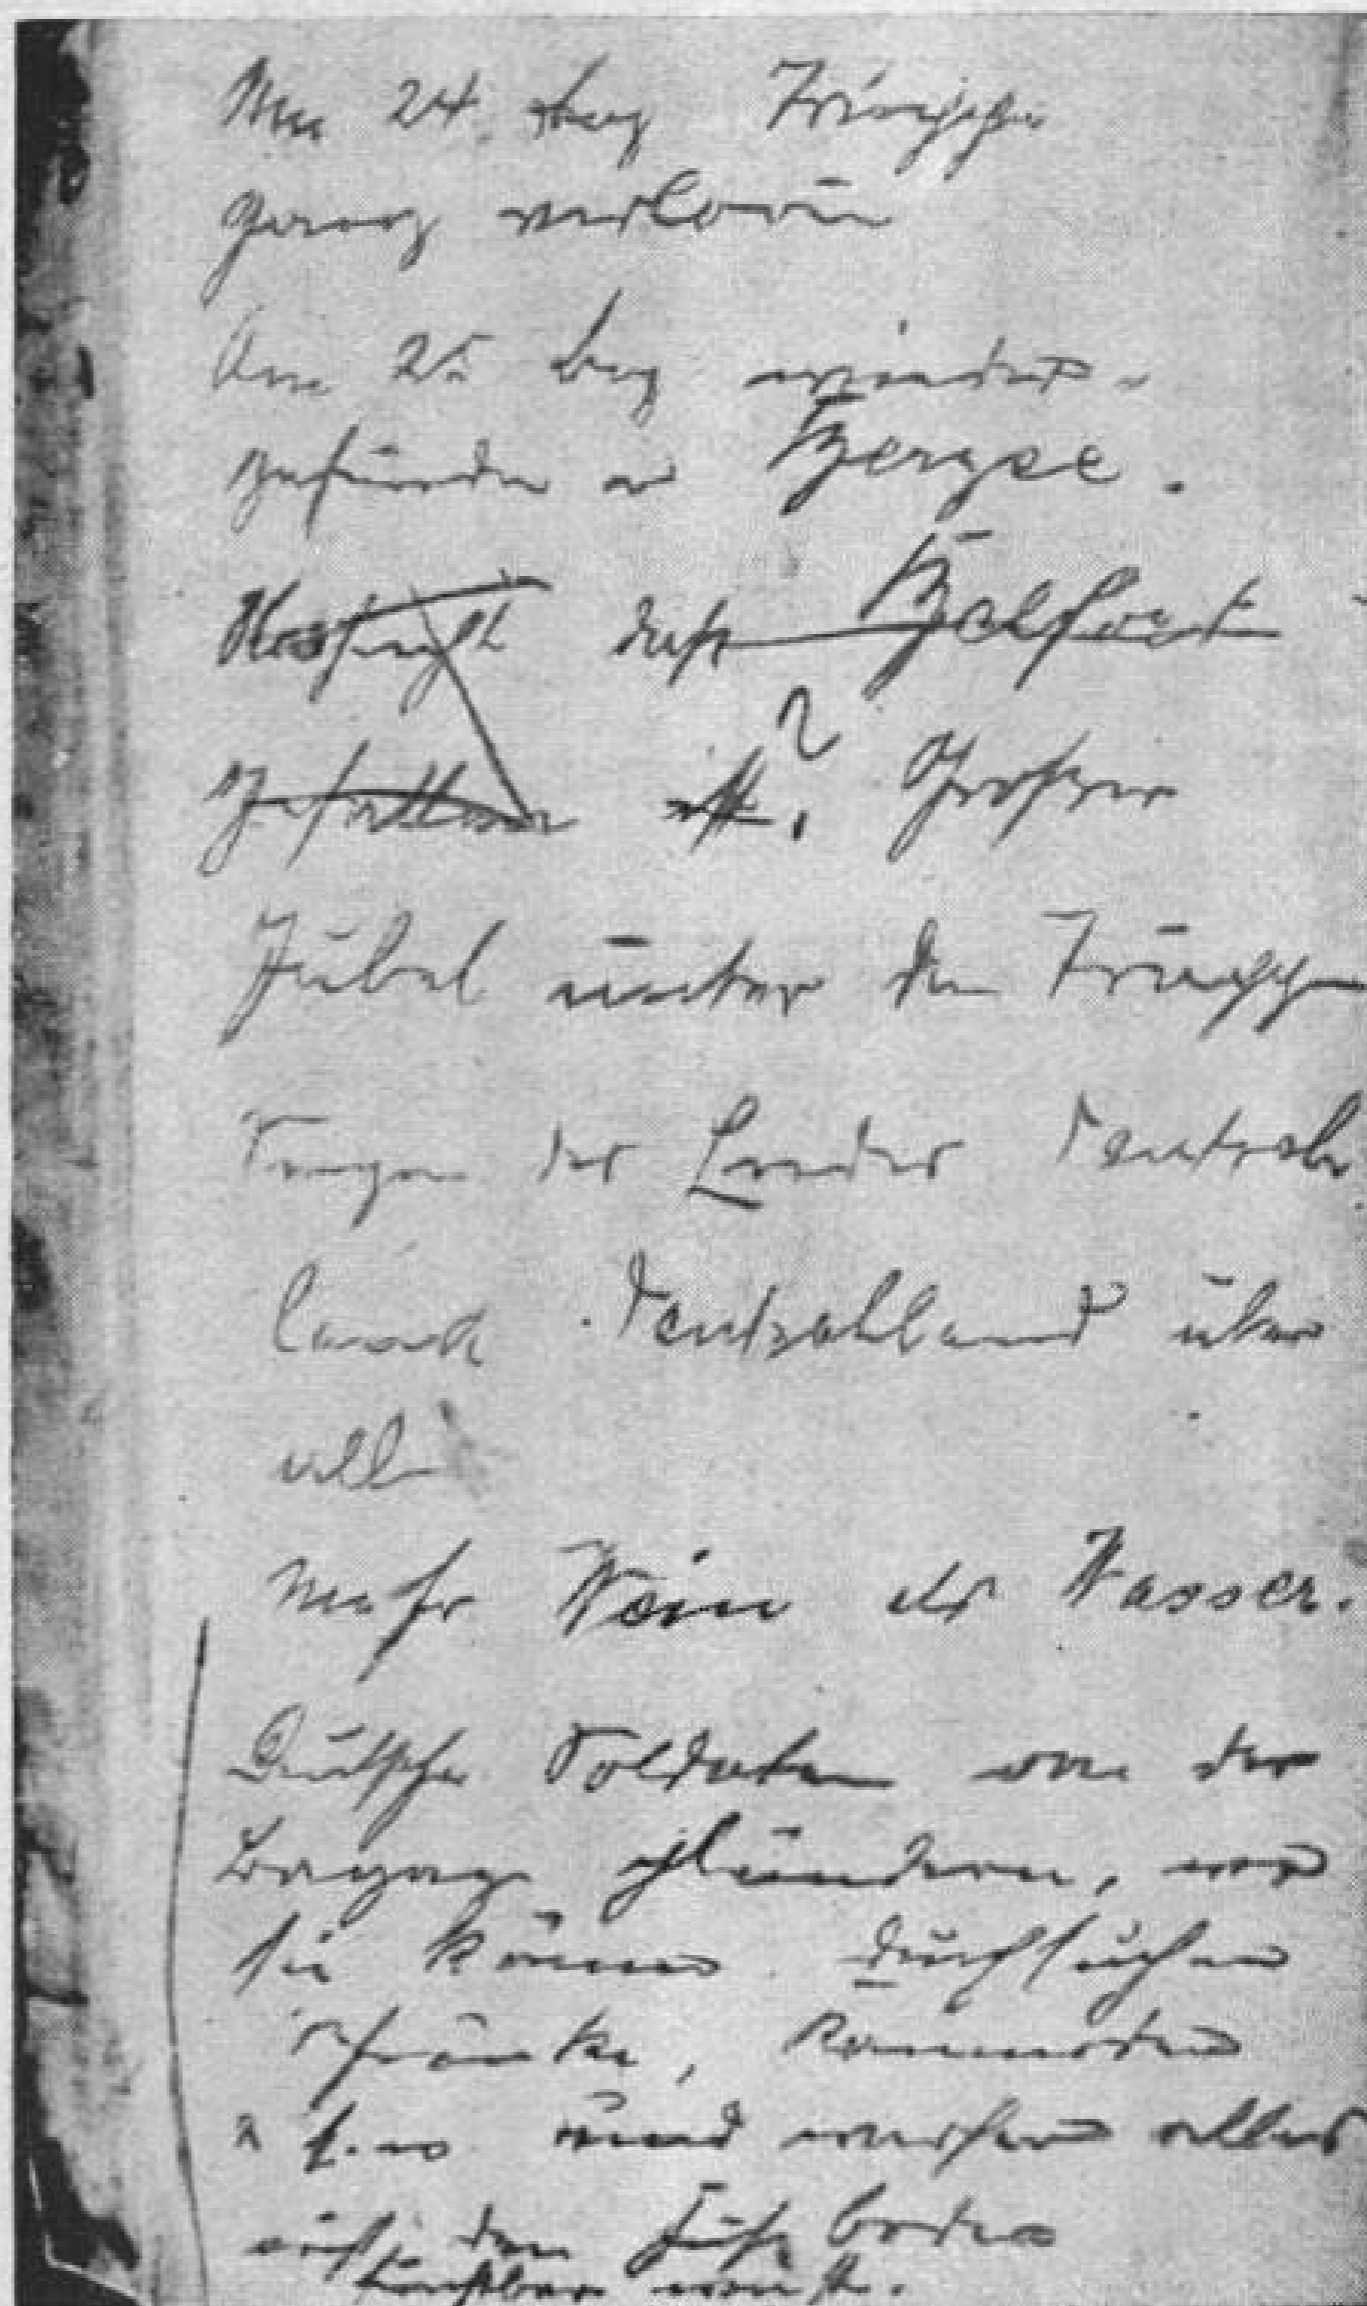 Am 24. Aug Truppe
ganz verloren
Am 25 Aug wieder-
gefunden Bergzee.
Nachricht daß Belfort
gefallen ist? Großer
Jubel unter den Truppen
Singen der Lieder Deutsch
land Deutschland über
alle
Mehr Wein als Wasser.
Deutsche Soldaten von der
Bagage plündern, wo
sie können. durchsuchen
Schränke, Kommoden
u s.w und werfen alles
auf den Fußboden
furchtbar wüst.